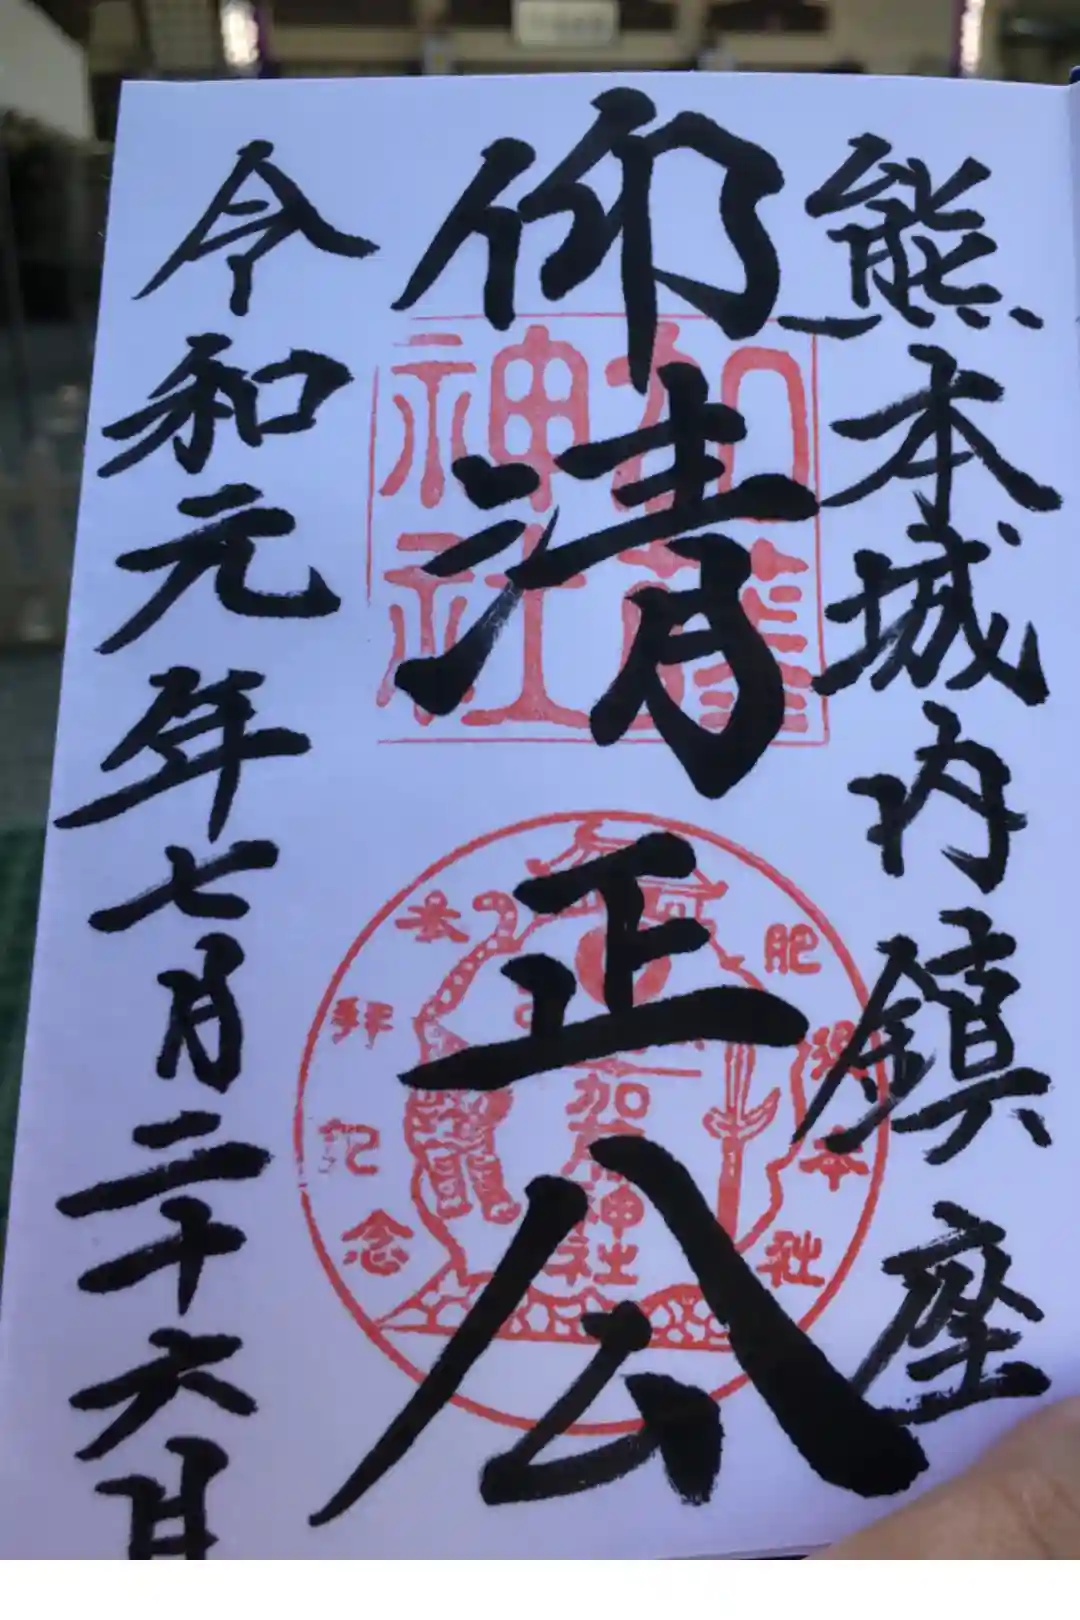 熊本城内鎮座
仰清正公
令和元年七月二十六日
加藤神社
肥後本社
参拝記念
加藤神社